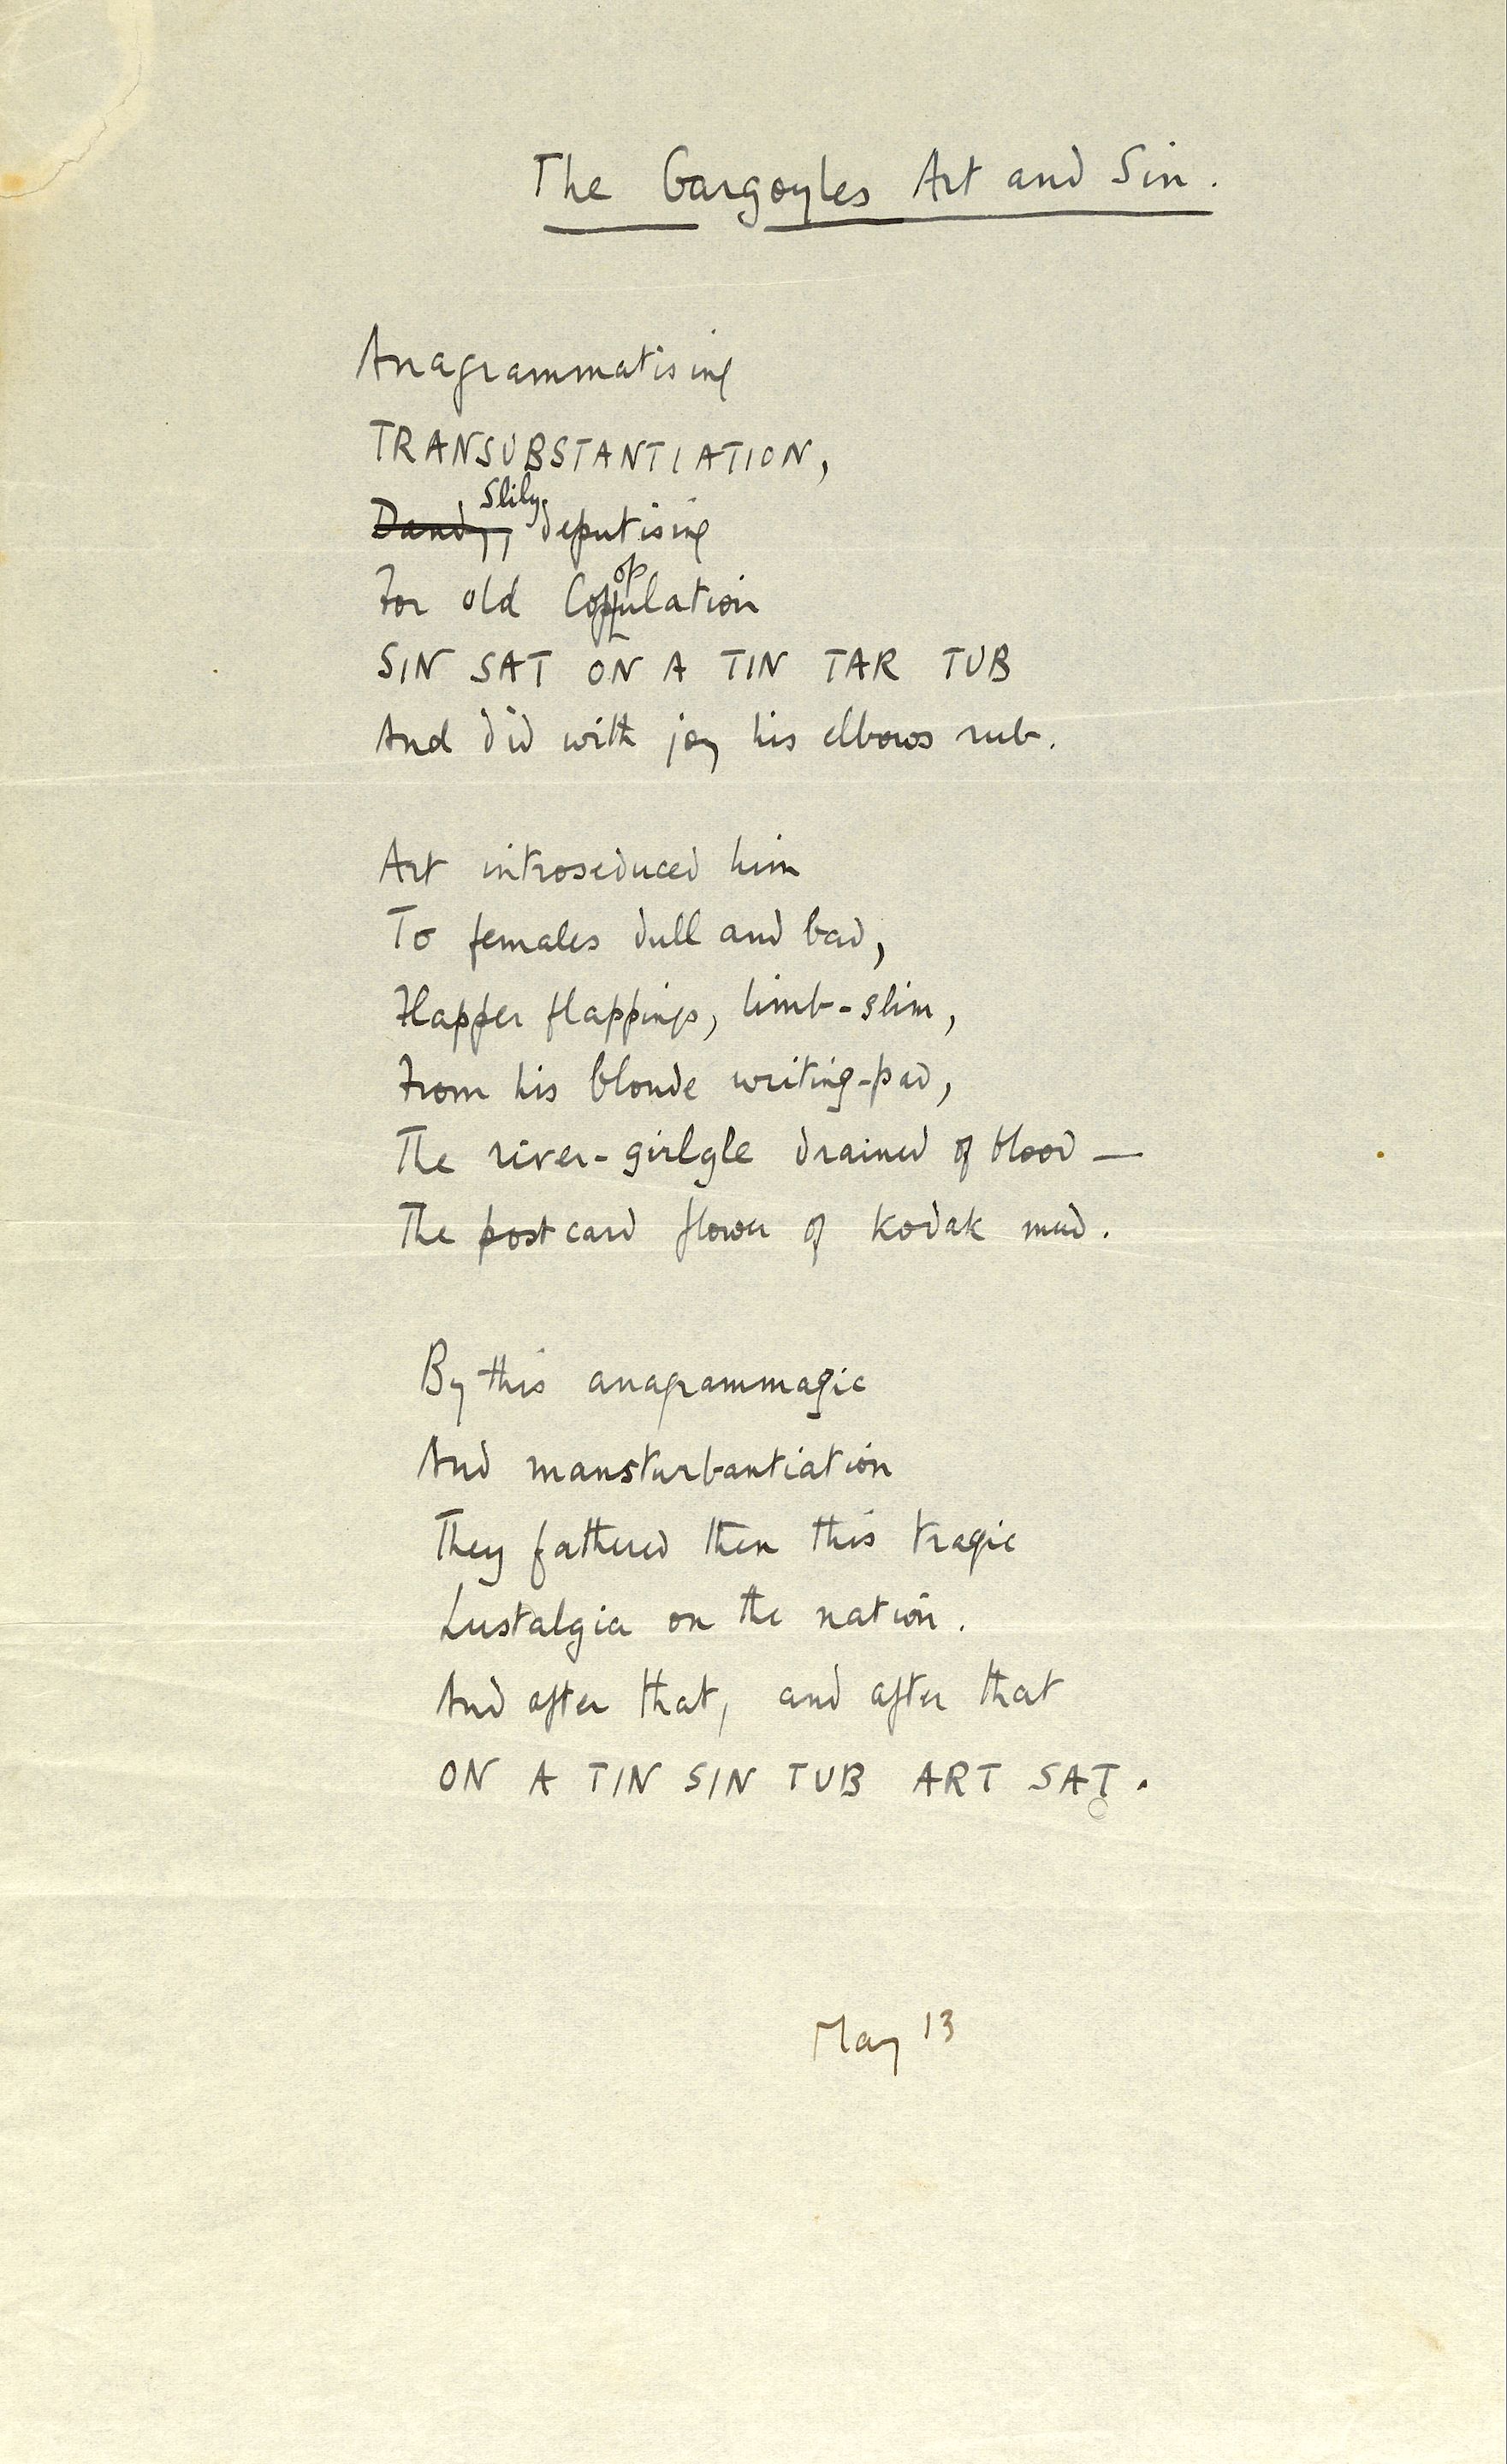 The Gargoyles Art and Sin.
Anagrammatising
TRANSUBSTANTIATION,
Slily
Dandy, deputising
For old Copulation
SIN SAT ON A TIN TAR TUB
And did with joy his elbows rub.
Art introseduced him
To females dull and bad,
Flapper flappings, limb-slim,
From his blonde writing-pad,
The river-girlgle drained of blood —
The post card flower of kodak mud.
By this anagrammagic
And mansturbantiation
They fathered then this tragic
Lustalgia on the nation.
And after that, and after that
ON A TIN SIN TUB ART SAT.
May 13